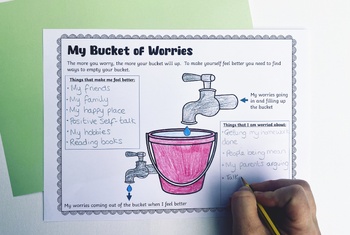 My Bucket of Worries
The more you worry, the more your bucket will up. To make yourself feel better you need to find
ways to empty your bucket.
Things that make me feel better:
- My friends
- My family
- My happy place
- Positive self-talk
- My hobbies
- Reading books
My worries going
in and filling up
the bucket
Things that I am worried about:
- Getting my homework
done
- People being mean
- My parents arguing
My worries coming out of the bucket when I feel better